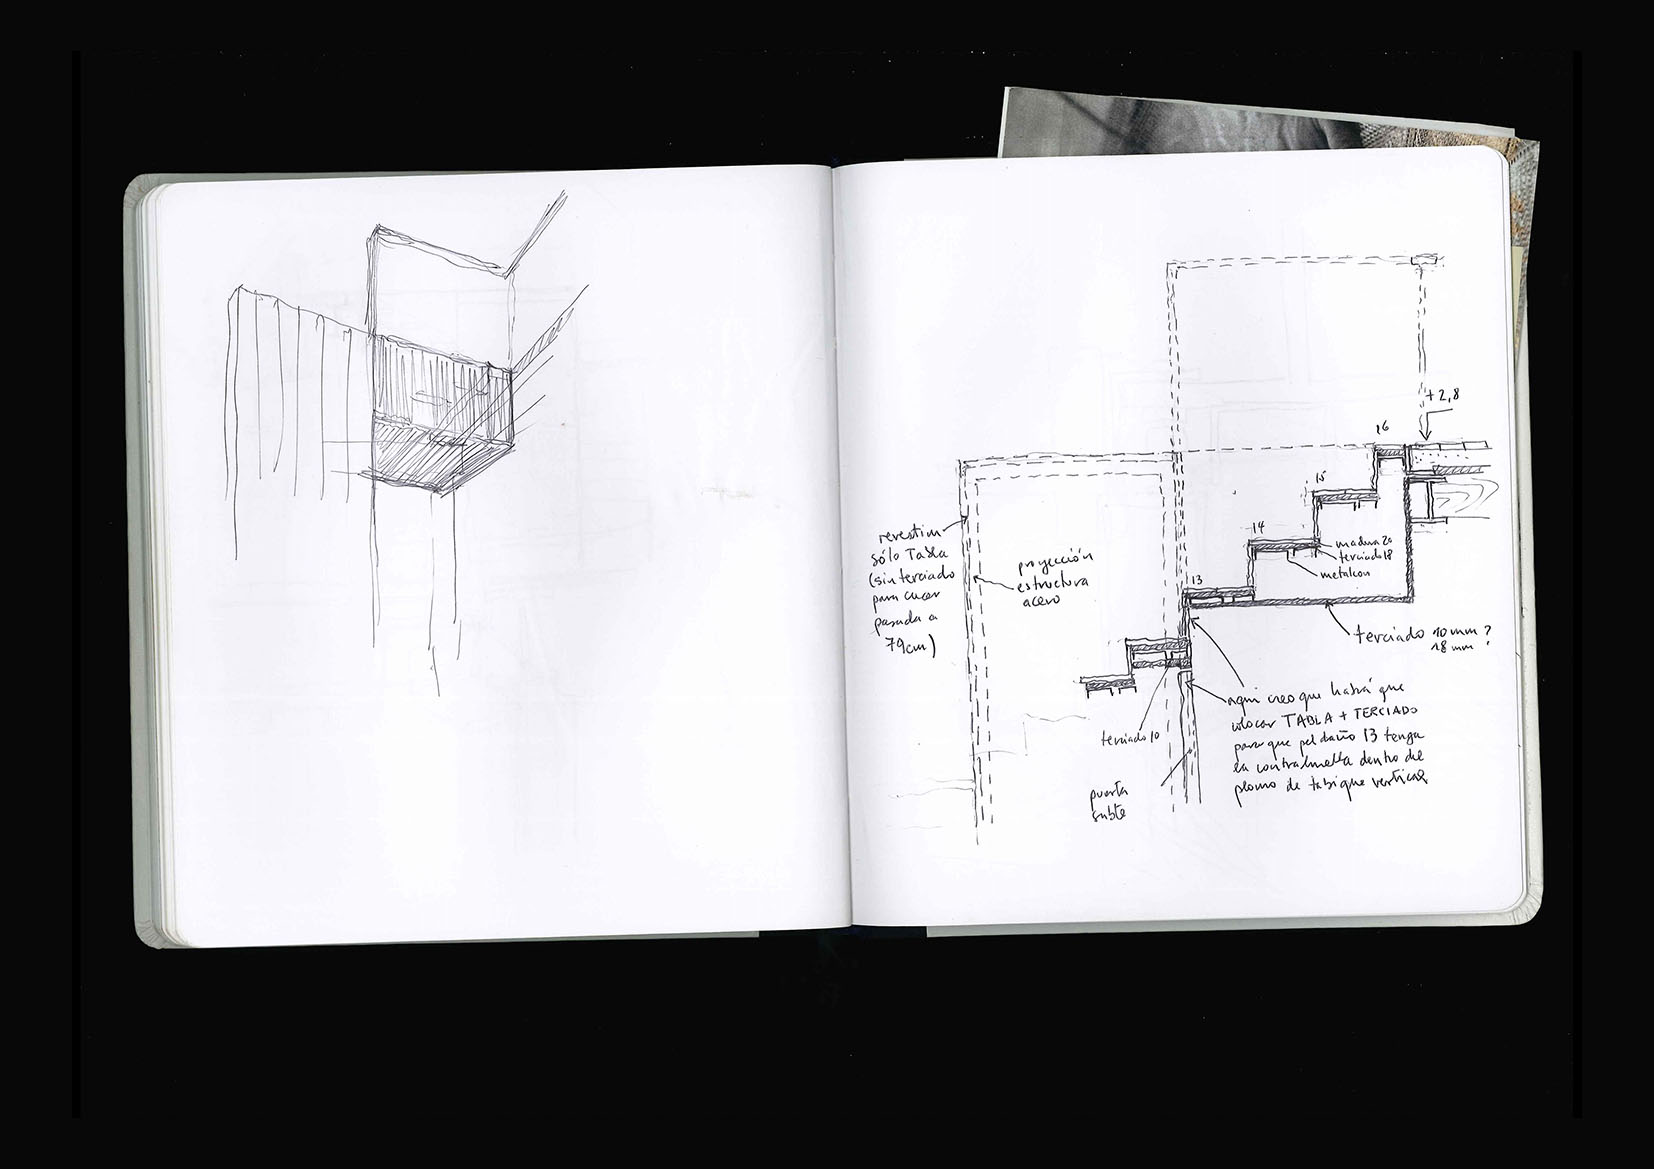 +2,8
16
15
14
madera 20
terciado 18
metalcon
13
revestim
sólo Tabla
(sin terciado
para
pasada a
79cm)
proyección
estructura
acero
terciado 10mm ?
18 mm
aquí creo que habrá que
colocar TABLA + TERCIADO
para que peldaño 13 tenga
la contrahuella dentro del
plomo de tabique vertical
terciado 10
puerta
subte